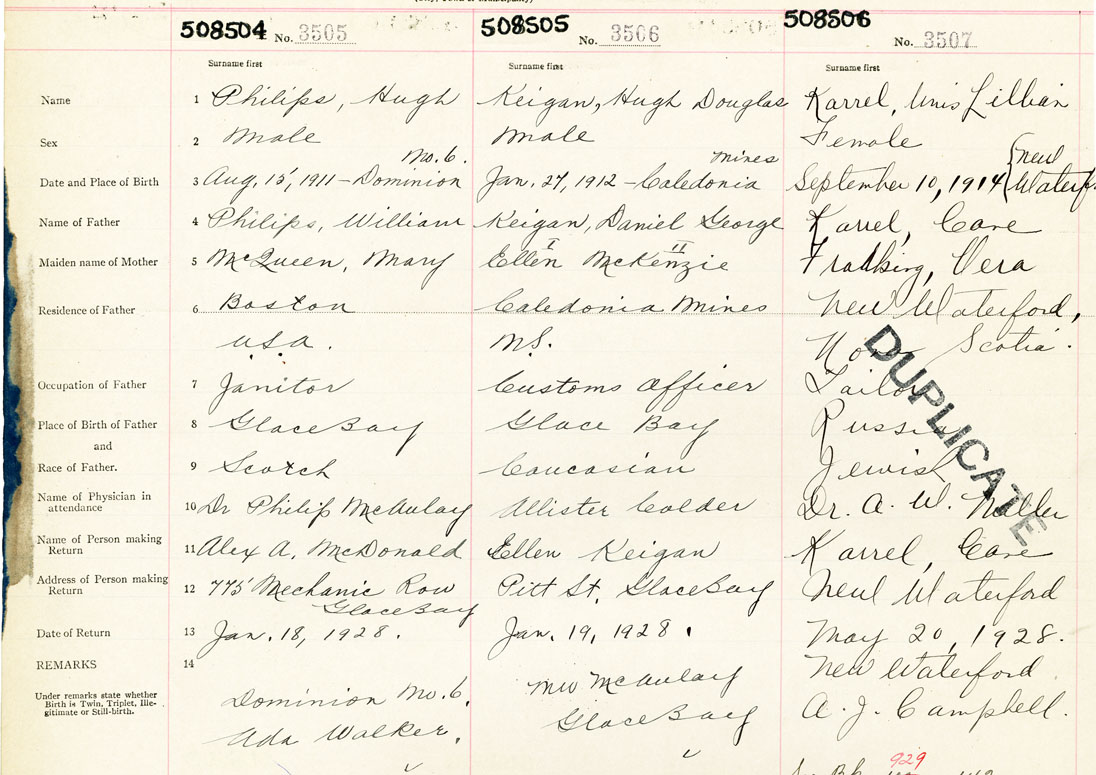 508504 No. 3505 508505 No. 3506 508506 No. 3507
Surname first Surname first Surname first
Name 1 Philips, Hugh Keigan, Hugh Douglas Karrel, Unis Lillian
Sex 2 Male Male Female
No. 6. Mines {New
Date and Place of Birth 3 Aug. 15, 1911 – Dominion Jan. 27, 1912 – Caledonia September 10, 1914
Name of Father 4 Philips, William Keigan, Daniel George Karrel,
Maiden name of Mother 5 McQueen, Mary Ellen McKenzie Vera
Residence of Father 6 Boston Caledonia Mines New Waterford,
U.S.A. N.S. Nova Scotia.
Occupation of Father 7 Janitor Customs Officer Tailor
Place of Birth of Father 8 Glace Bay Glace Bay Russia
and
Race of Father. 9 Scotch Caucasian Jewish
Name of Physician in
attendance 10 Dr Philip McAulay Allister Calder Dr. A. W. Miller
Name of Person making
Return 11 Alex A. McDonald Ellen Keigan Karrel,
Address of Person making
Return 12 775 Mechanic Row Pitt St. Glace Bay New Waterford
Glace Bay
Date of Return 13 Jan. 18, 1928. Jan. 19, 1928. May 20, 1928.
REMARKS 14 New Waterford
Under remarks state whether
Birth is Twin, Triplet, Ille-
gitimate or Still-birth.
Dominion No. 6. MW McAulay A. J. Campbell.
Ada Walker. Glace Bay
DUPLICATE
929